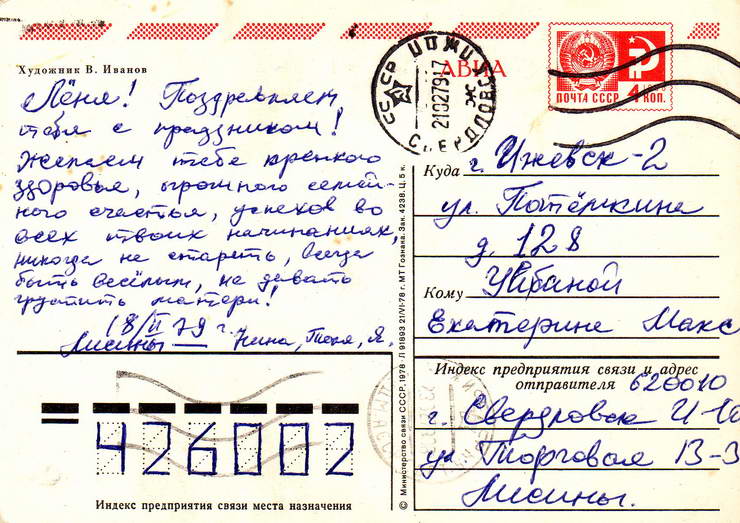 Художник В. Иванов
Лёня! Поздравляем
тебя с праздником!
Желаем тебе крепкого
здоровья, огромного семей-
ного счастья, успехов во
всех твоих начинаниях,
никогда не стареть, всегда
быть весёлым, не давать
грустить матери!
18/II 79 г.
Лисины — Нина, Таня, Я.
426002
Индекс предприятия связи места назначения
© Министерство связи СССР, 1978 · Л 91893 21/VI-78 г. МТ Гознака. Зак. 4238. Ц. 5 к.
АВИА
СССР
21027917
СВЕРДЛОВСК
ПОЧТА СССР
4 КОП.
Куда г. Ижевск-2
ул. Потёмкина
д. 128
Кому Урбаной
Екатерине Макс
Индекс предприятия связи и адрес
отправителя 620010
г. Свердловск И-10
ул Торговая 13-3
Лисины.